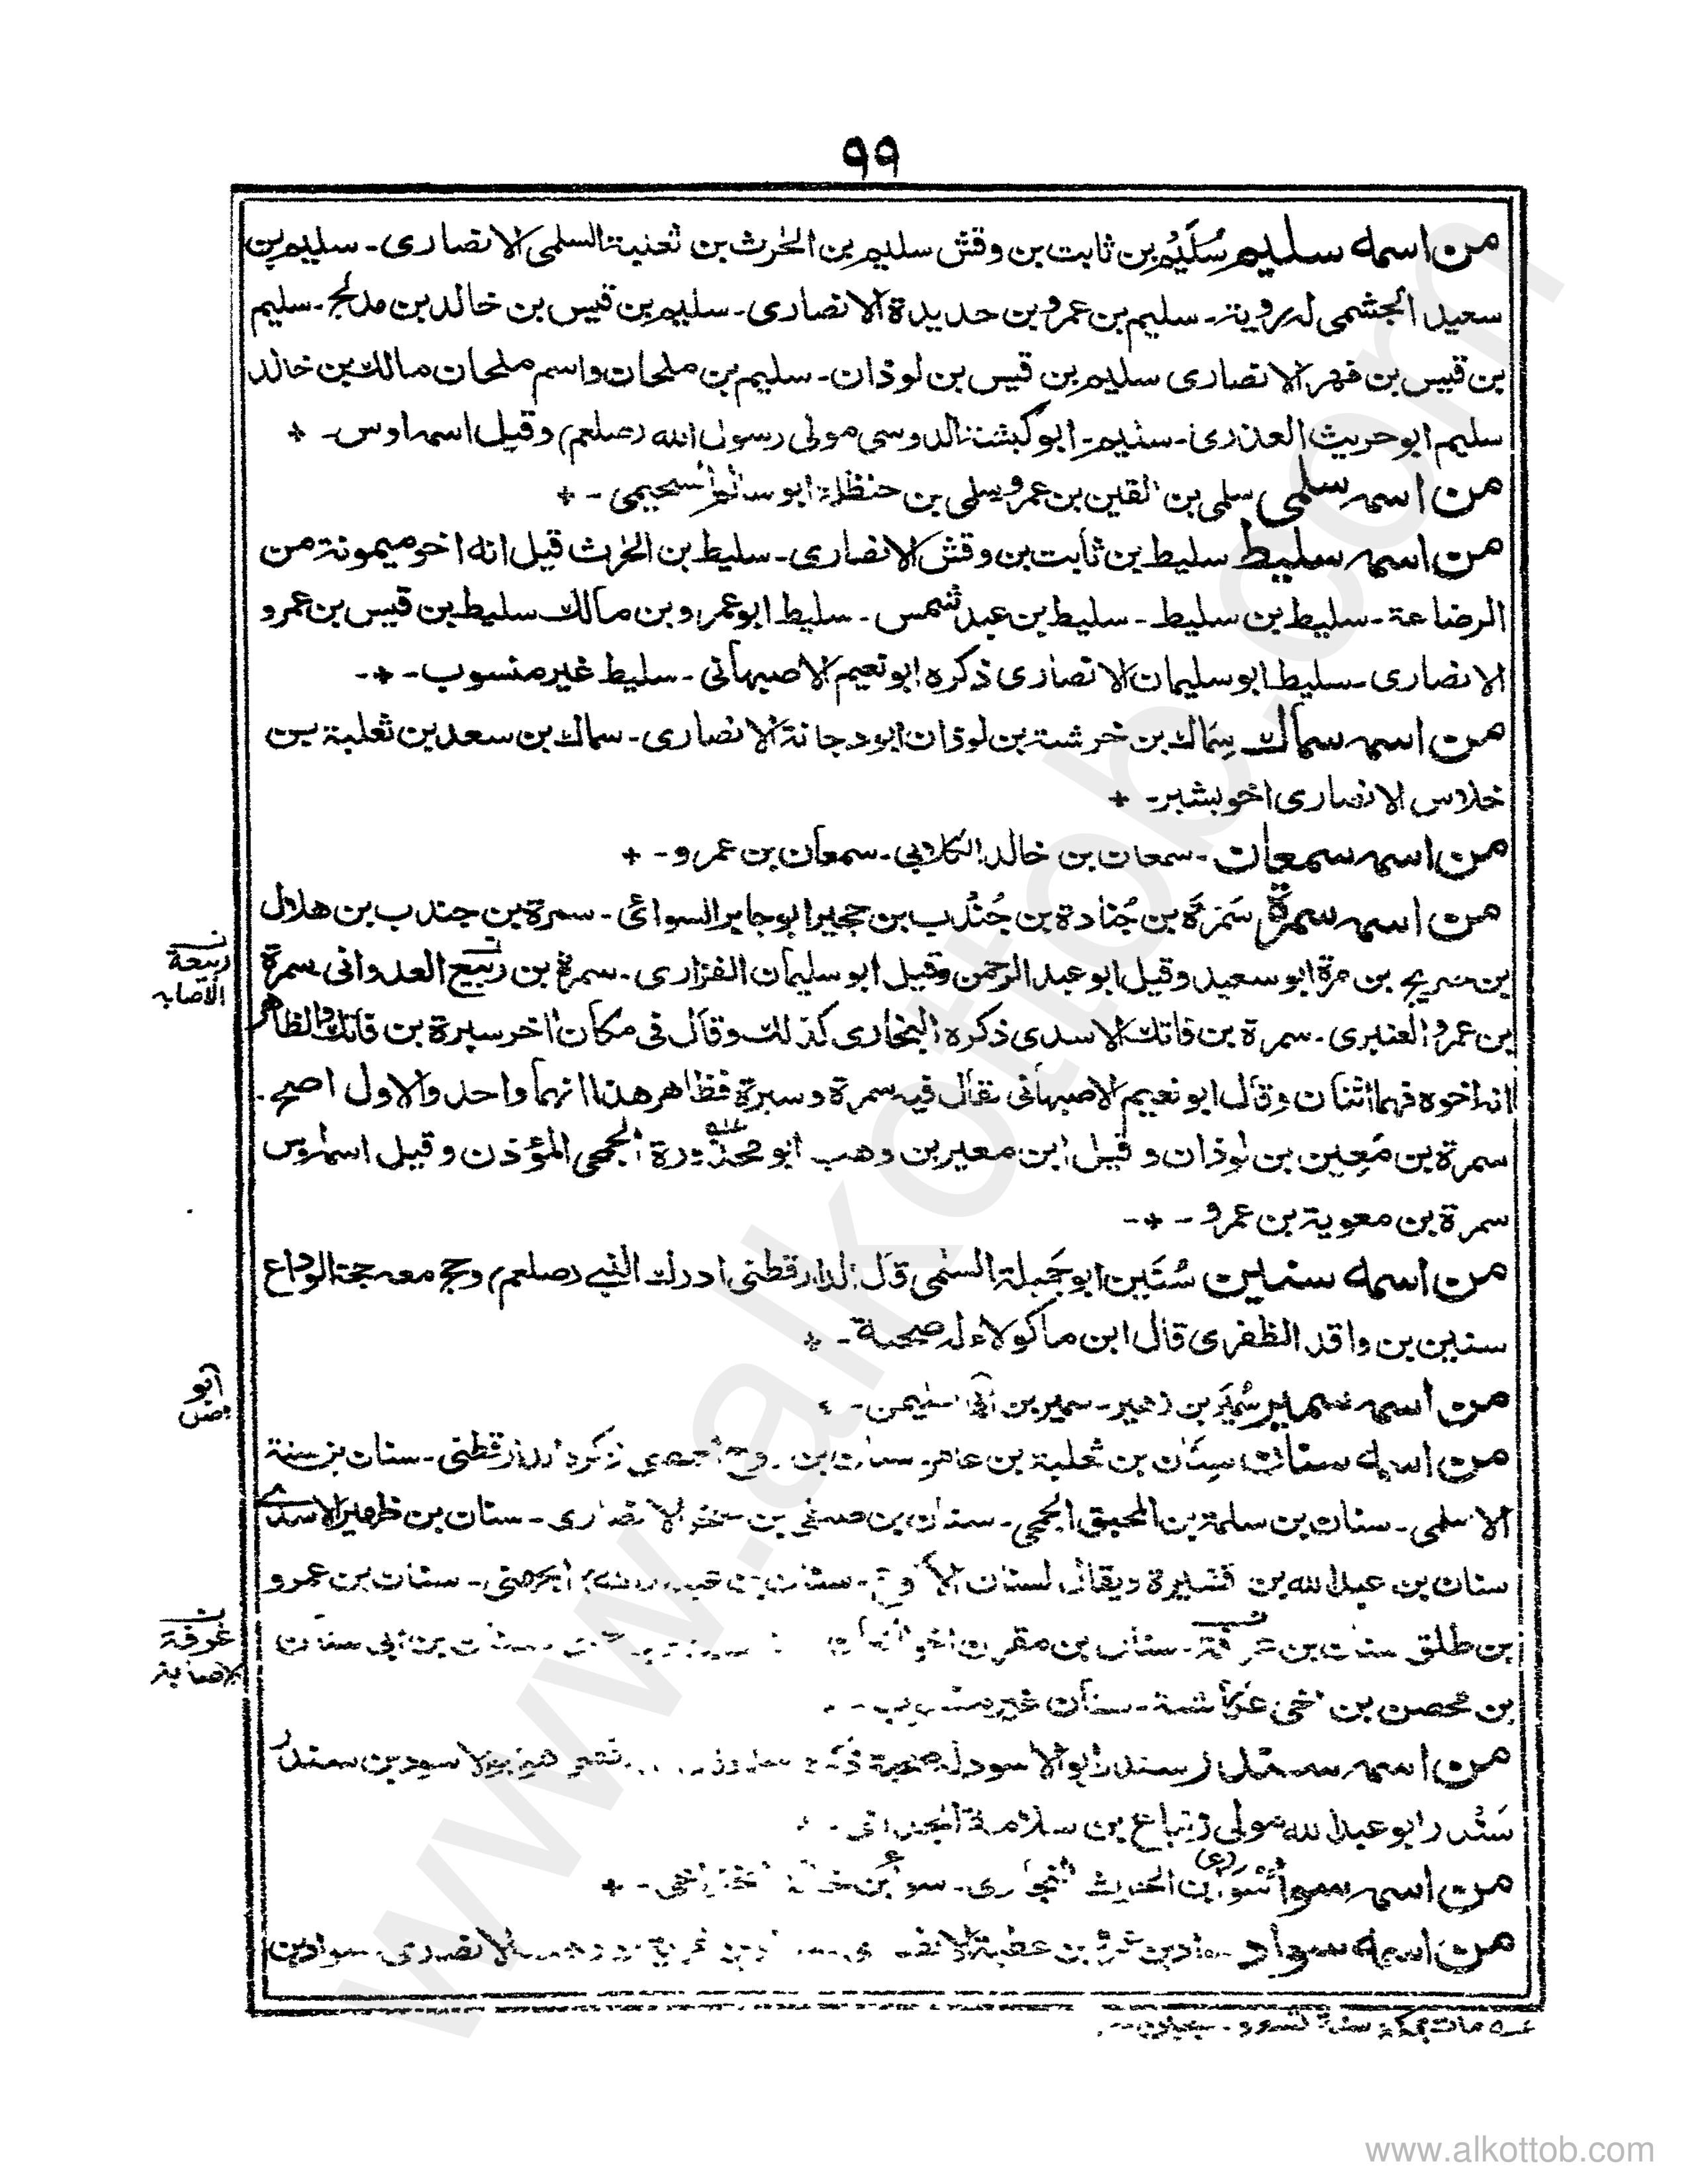 ٩٩
من اسمه سليم سُلَيْم بن ثابت بن وقش سليم بن الحٰرث بن ثعلبة السلمى الانصارى ـ سليم بن
سعيد الجشمى له روية ـ سليم بن عمرو بن حديدة الانصارى ـ سليم بن قيس بن خالد بن مدلج ـ سليم
بن قيس بن فهر الانصارى سليم بن قيس بن لوذان ـ سليم بن ملحان واسم ملحان مالك بن خالد
سليم ابو حريث العذرى ـ سليم ـ ابو كبشة الدوسى مولى رسول الله (صلعم) وقيل اسمه اوس ـ +
من اسمه سلمى سلمى بن القين بن عمرو سلمى بن حنظلة ابو سالم السحيمى ـ +
من اسمه سليط سليط بن ثابت بن وقش الانصارى ـ سليط بن الحٰرث قيل انه اخو ميمونة من
الرضاعة ـ سليط بن سليط ـ سليط بن عبد شمس ـ سليط ابو عمرو بن مالك سليط بن قيس بن عمرو
الانصارى ـ سليط ابو سليمان الانصارى ذكره ابو نعيم الاصبهانى ـ سليط غير منسوب ـ + ـ
من اسمه سماك سِمَاك بن خرشة بن لوذان ابو دجانة الانصارى ـ سماك بن سعد بن ثعلبة بن
خلاس الانصارى اخو بشير ـ +
من اسمه سمعان ـ سمعان بن خالد الكلابى ـ سمعان بن عمرو ـ +
من اسمه سمرة سَمُرَة بن جُنادة بن جُنْدُب بن حجير ابو جابر السوائى ـ سمرة بن جندب بن هلال
بن حريج بن مرة ابو سعيد وقيل ابو عبد الرحمن وقيل ابو سليمان الفزارى ـ سمرة بن ربيع العدوانى سمرة
ربيعة
الاصابه
بن عمرو العنبرى ـ سمرة بن فاتك الاسدى ذكره البخارى كذلك وقال فى مكان اخر سبرة بن فاتك والظاهر
انه اخوه فهما اثنان وقال ابو نعيم الاصبهانى يقال فيه سمرة وسبرة فظاهر هذا انهما واحد والاول اصح ـ
سمرة بن مَعِين بن لوذان وقيل ابن معير بن وهب ابو محذورة الجمحى المؤذن وقيل اسمه اوس
سمرة بن معوية بن عمرو ـ + ـ
من اسمه سنين سُنَين ابو جَميلة السلمى قال الدارقطنى ادرك النبى (صلعم) وحج معه حجة الوداع
سنين بن واقد الظفرى قال ابن ماكولاء له صحبة ـ +
من اسمه سمير سُمَير بن زهير ـ سمير بن
ابو
من اسمه سنان سِنَان بن ثعلبة بن عامر ـ سنان بن ذكره الدارقطنى ـ سنان بن سنة
الاسلمى ـ سنان بن سلمة بن المحبق الجمحى ـ سنان بن صيفى بن صخر الانصارى ـ سنان بن ظهير الاسدى
سنان بن عبد الله بن قشيرة ويقال لسنان الاكوع ـ سنان بن عبد الله الجهنى ـ سنان بن عمرو
بن طلق سنان بن عرفة ـ سنان بن مقرن اخو سنان بن ابى سنان
غرفة
الاصابة
بن محصن بن اخى عكاشة ـ سنان غير منسوب ـ
من اسمه سندر سندر ابو الاسود له صحبة هو ابو الاسود بن سندر
سَنْدر ابو عبد الله مولى زنباع بن سلامة الجذامى ـ
من اسمه سواء بن الحٰرث النجارى ـ سواء بن خالد ـ +
من اسمه سواد بن عقبة الانصارى ـ سواد بن
مات بمكة سنة تسع و
www.alkottob.com
www.alkottob.com